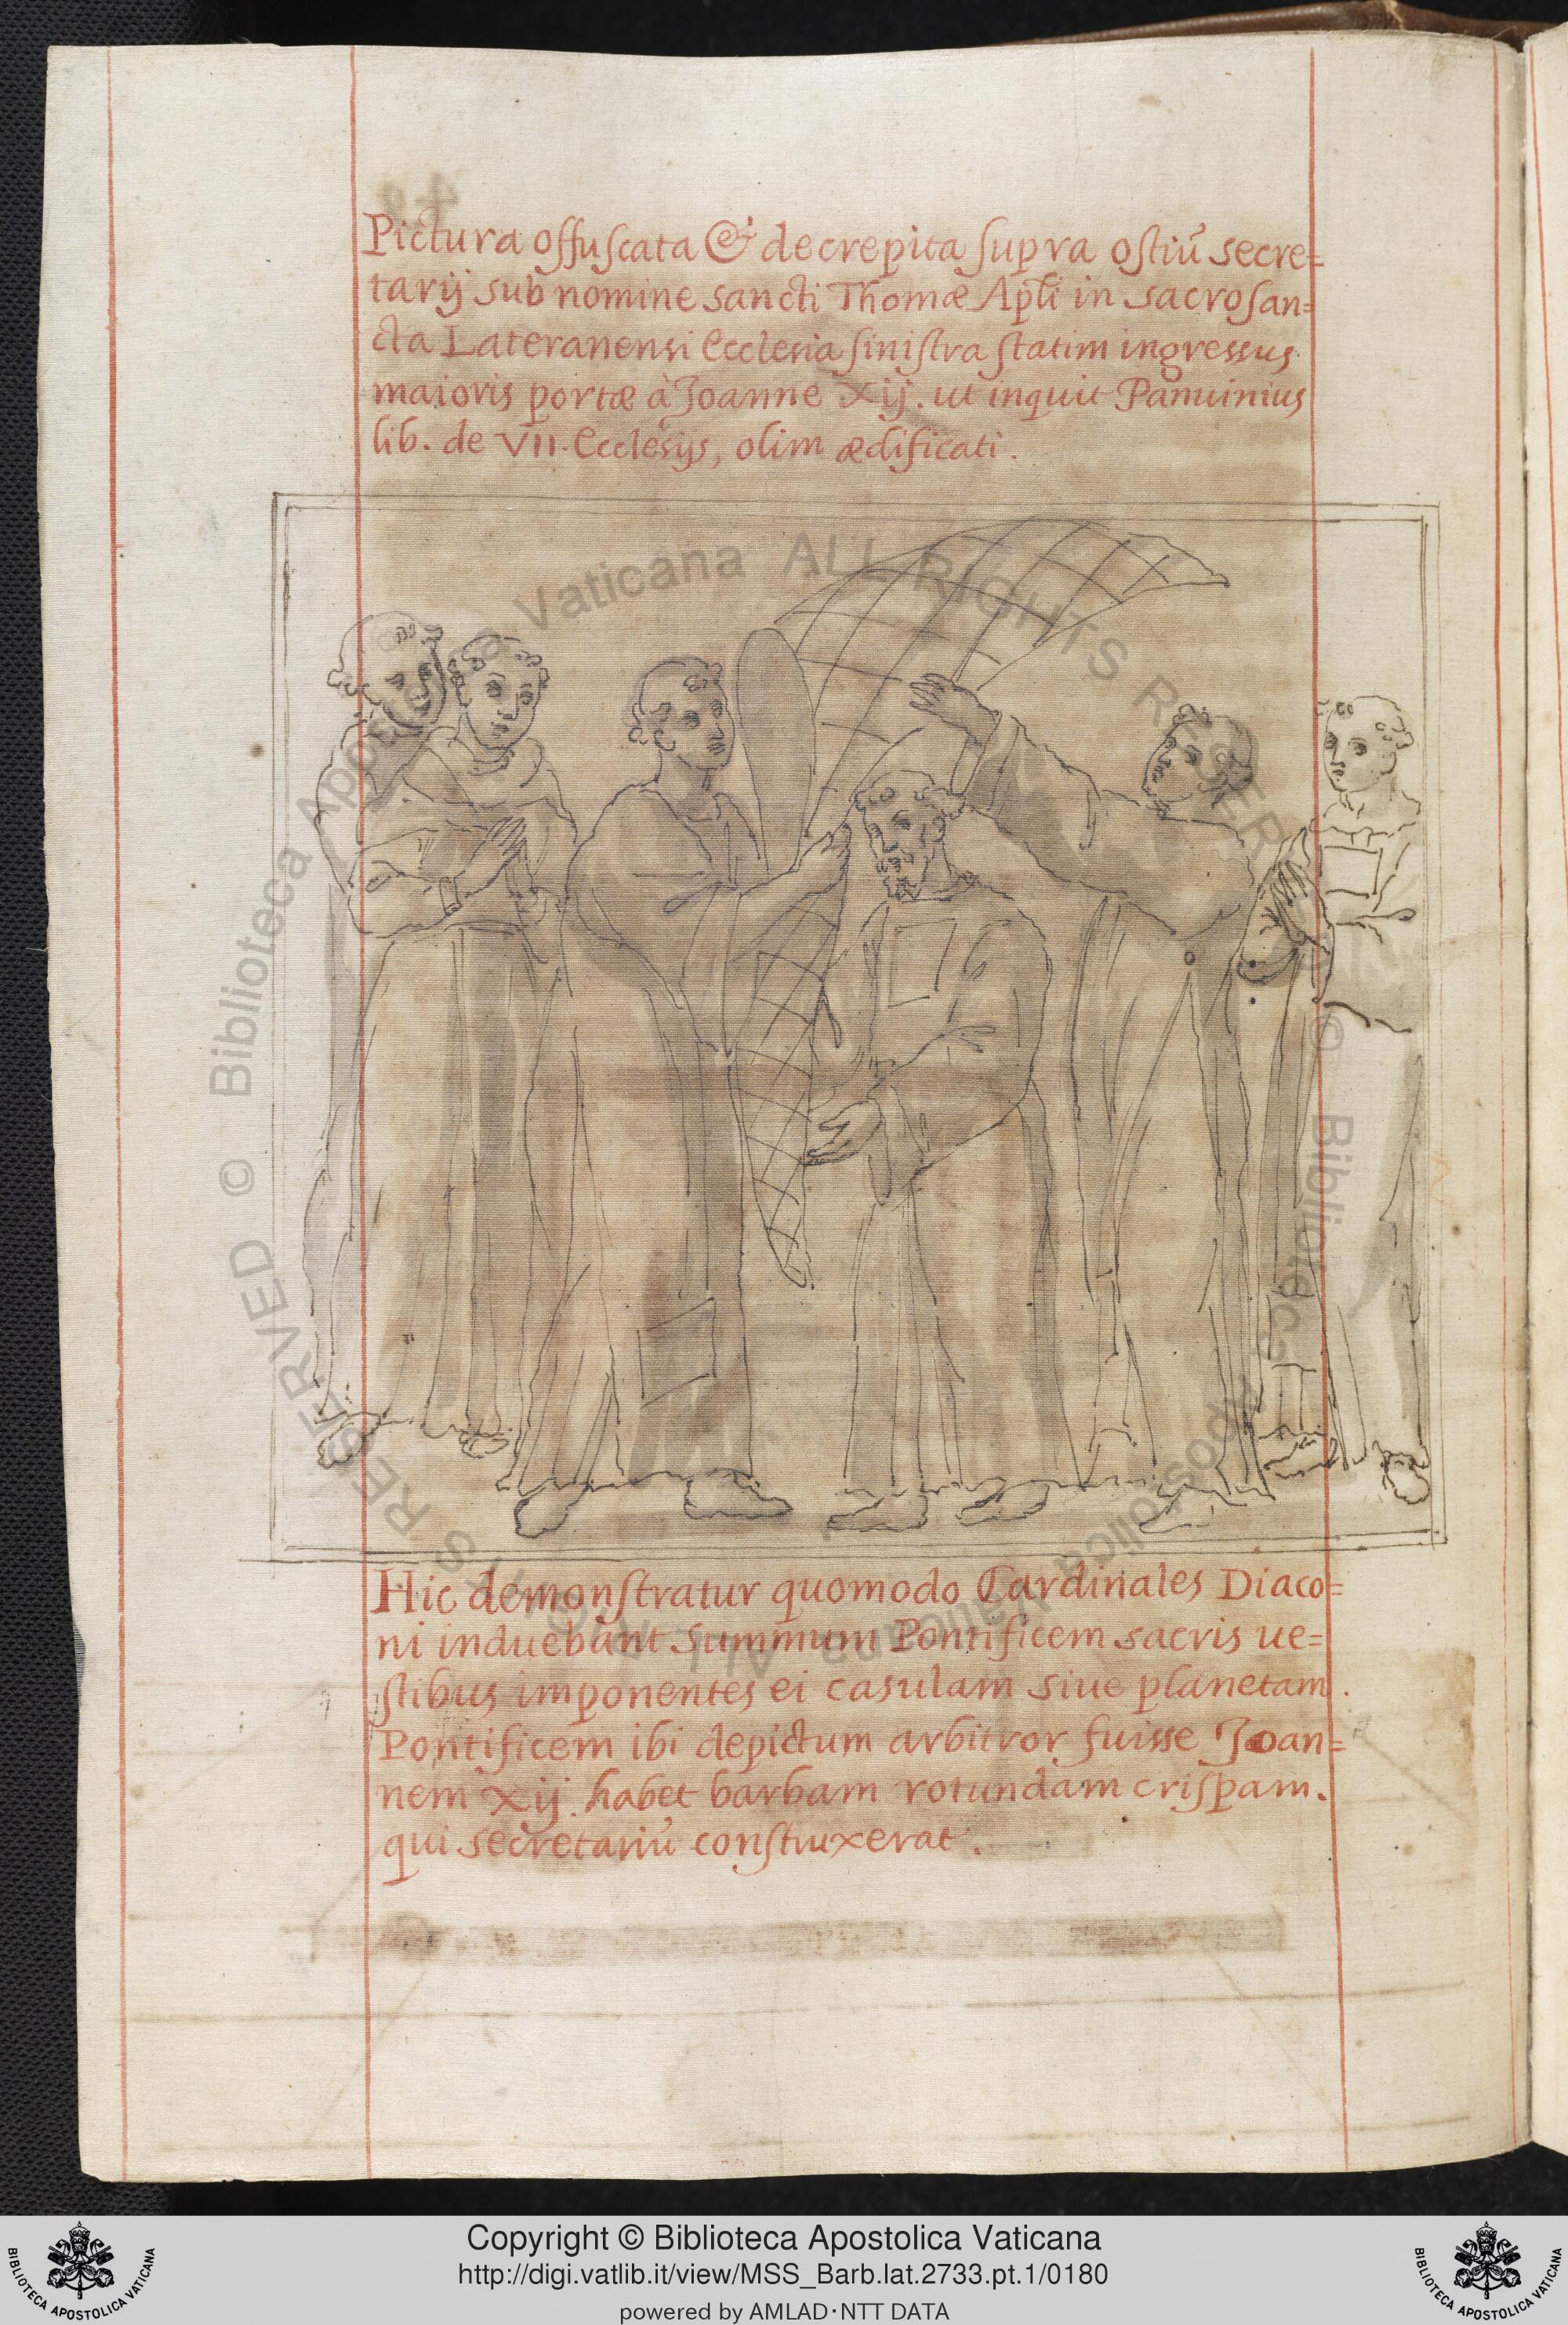 Pictura offuscata & decrepita supra ostiũ secre=
tarij sub nomine sancti Thomæ Apłi in sacrosan=
cta Lateranensi Ecclesia sinistra statim ingressus
maioris portæ à Joanne Xij. ut inquit Panuinius
lib. de VII. Ecclesijs, olim ædificati.
Hic demonstratur quomodo Cardinales Diaco=
ni induebant summum Pontificem sacris ue=
stibus imponentes ei casulam siue planetam.
Pontificem ibi depictum arbitror fuisse Joan=
nem Xij. habet barbam rotundam crispam.
qui secretariũ construxerat.
© Biblioteca Apostolica Vaticana ALL RIGHTS RESERVED © Biblioteca Apostolica Vaticana ALL RIGHTS RESERVED
Copyright © Biblioteca Apostolica Vaticana
http://digi.vatlib.it/view/MSS_Barb.lat.2733.pt.1/0180
powered by AMLAD·NTT DATA
BIBLIOTECA APOSTOLICA VATICANA
BIBLIOTECA APOSTOLICA VATICANA